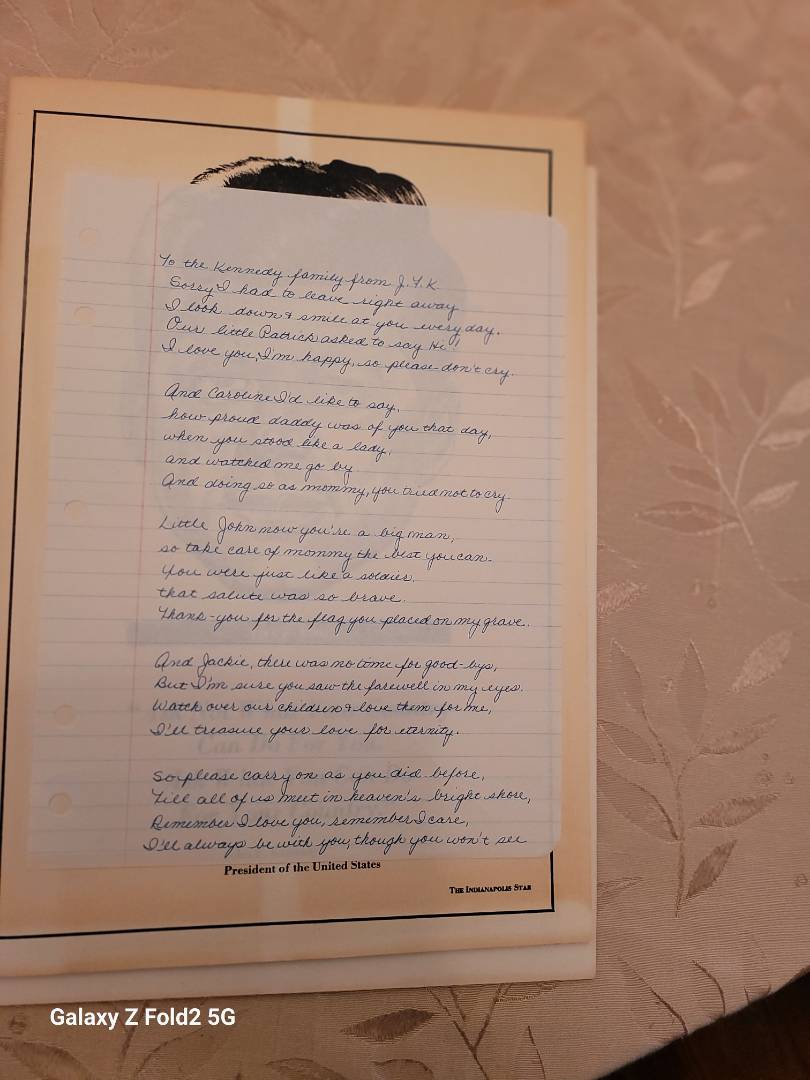 To the Kennedy family from J.F.K.
Sorry I had to leave right away
I look down & smile at you every day.
Our little Patrick asked to say Hi!
I love you, I'm happy, so please don't cry.
And Caroline I'd like to say,
how proud daddy was of you that day,
when you stood like a lady,
and watched me go by
And doing so as mommy, you tried not to cry.
Little John now you're a big man,
so take care of mommy the best you can.
You were just like a soldier,
that salute was so brave.
Thank-you for the flag you placed on my grave.
And Jackie, there was no time for good-bys,
But I'm sure you saw the farewell in my eyes.
Watch over our children & love them for me,
I'll treasure your love for eternity.
Can Do For You
So please carry on as you did before,
Till all of us meet in heaven's bright shore,
Remember I love you, remember I care,
I'll always be with you, though you won't see
President of the United States
THE INDIANAPOLIS STAR
Galaxy Z Fold2 5G